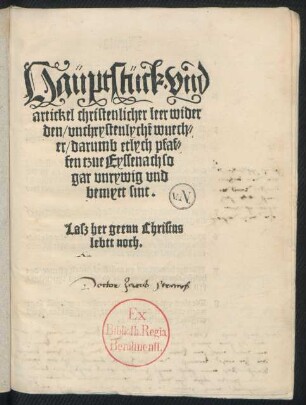 Hauptstuck vnd
artickel christenlicher leer wider
den/vnchrystenlychen wuech⸗
er/darumb etlych pfaf⸗
fen tzue Eyssenach so
gar vnrywig vnd
bemyet sint.
Lasz her geenn Christus
lebet noch.
Doctor Jacob
Ex
Biblioth. Regia
Berolinensi.